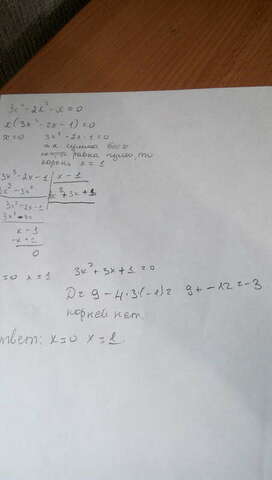 3x⁴-2x²-x=0
x(3x³-2x-1)=0
x=0 3x³-2x-1=0
т.к сумма всех
равна нулю, то
корень x=1
3x³-2x-1 | x-1
3x³-3x² | 3x²+3x+1
3x²-2x-1
3x²-3x
x-1
-x+1
0
=0 x=1 3x²+3x+1=0
D=9-4·3(-1)= 9+-12=-3
корней нет.
ответ: x=0 x=1